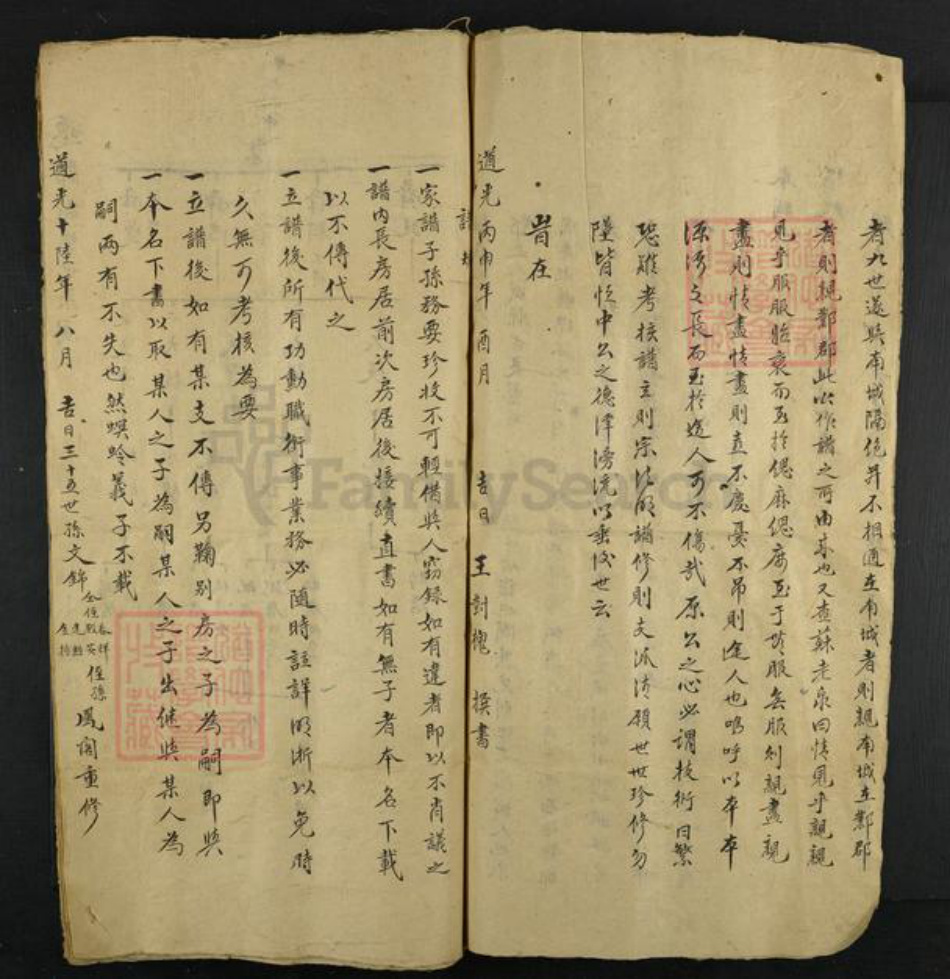 者九世遂與南城隔絕并不相通在南城者則親南城在鄞郡
者則親鄞郡此吾作譜之所由來也又查蘇老泉曰情見乎親親
見乎服服始衰而至於緦麻緦麻至于無服無服則親盡親
盡則情盡情盡則喜不慶憂不吊則途人也嗚呼以本本
源源之長而至於途人可不傷哉原公之心必謂枝術日繁
恐難考核譜立則宗法明譜修則支派清願世世珍修勿
墜皆恒中公之德澤湧流以垂後世云
旹在
道光丙申年 酉月 吉日 王對 撰書
譜
一家譜子孫務要珍收不可輕借與人竊錄如有違者即以不肖議之
一譜內長房居前次房居後接續直書如有無子者本名下載
以不傳代之
一立譜後所有功勳職銜事業務必隨時註詳明晰以免時
久無可考核為要
一立譜後如有某支不傳另鞠別房之子為嗣即與
一本名下書以取某人之子為嗣某人之子出継與某人為
嗣兩有不失也然螟蛉義子不載
道光十陸年 八月 吉日三十五世孫文錦 侄孫 鳳閣重修
FamilySearch